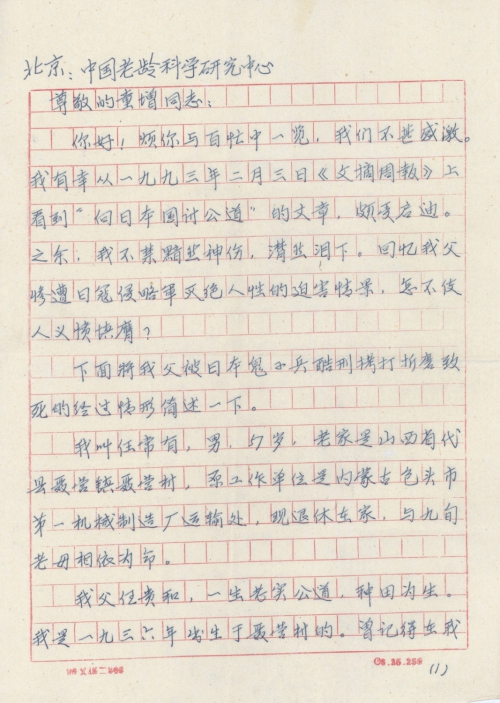 北京：中国老龄科学研究中心
尊敬的童增同志：
你好！烦你与百忙中一览，我们不胜感激。
我有幸从一九九三年二月三日《文摘周报》上
看到“向日本国讨公道”的文章，颇受启迪。
之余，我不禁黯然神伤，潸然泪下。回忆我父
惨遭日寇侵略军灭绝人性的迫害情景，怎不使
人义愤填膺？
下面将我父被日本鬼小兵酷刑拷打折磨致
死的经过情形简述一下。
我叫任常有，男，57岁，老家是山西省代
县聂营镇聂营村，原工作单位是内蒙古包头市
第一机械制造厂运输处，现退休在家，与九旬
老母相依为命。
我父任贵和，一生老实公道，种田为生。
我是一九三六年出生于聂营村的。曾记得在我
(1)